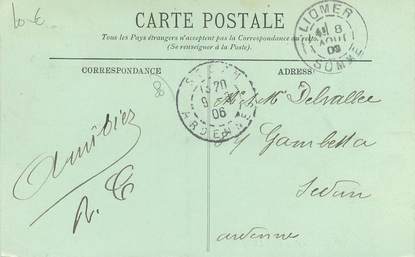 10 €
CARTE POSTALE
Tous les Pays étrangers n'acceptent pas la Correspondance au recto
(Se renseigner à la Poste)
LIOMER
8
AOUT
SOMME
CORRESPONDANCE
ADRESSE
SEDAN
9
06
ARDENNES
Mr Mme Delvallée
Gambetta
Sedan
ardenne
Amitiés
R. C